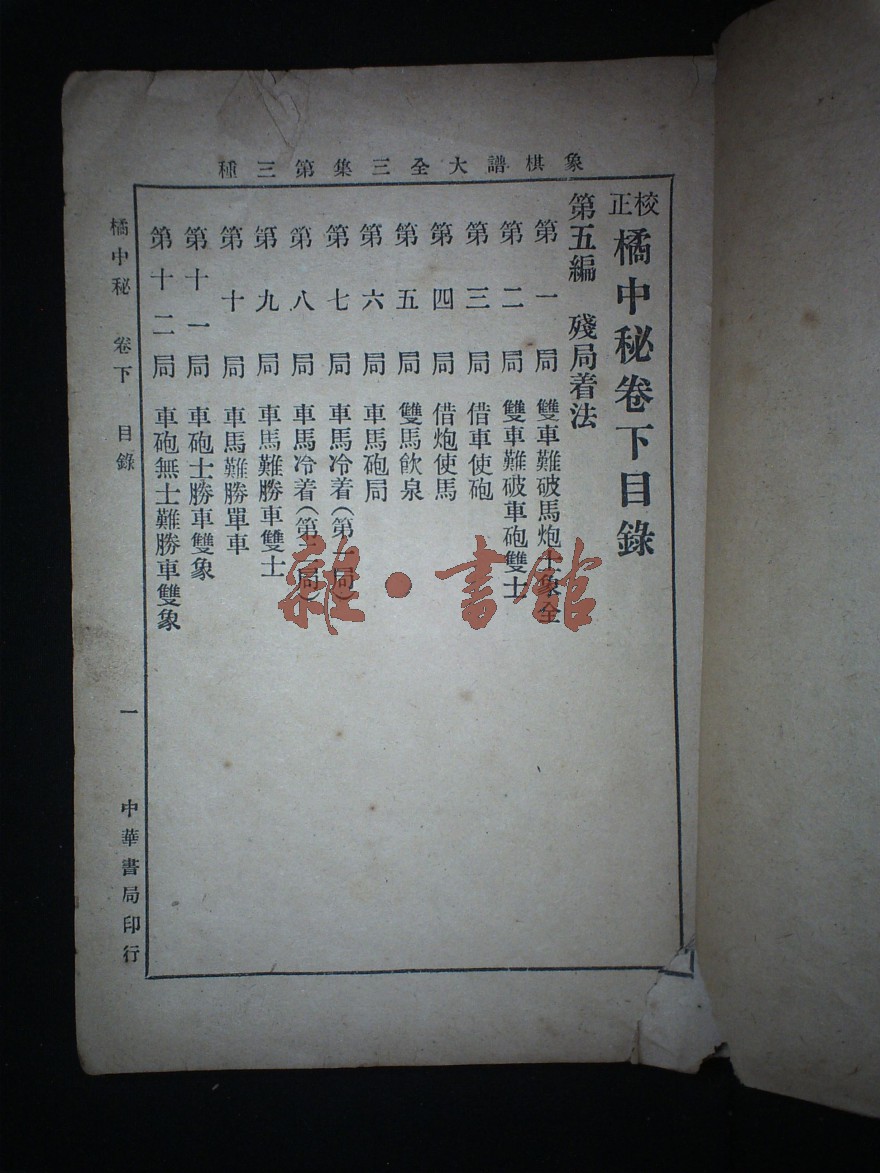 象棋譜大全三集第三種
校正橘中秘卷下目錄
第五編 殘局着法
第一局 雙車難破馬炮士象全
第二局 雙車難破車砲雙士
第三局 借車使砲
第四局 借炮使馬
第五局 雙馬飲泉
第六局 車馬砲局
第七局 車馬冷着(第一局)
第八局 車馬冷着(第二局)
第九局 車馬難勝車雙士
第十局 車馬難勝單車
第十一局 車砲士勝車雙象
第十二局 車砲無士難勝車雙象
橘中秘 卷下 目錄
一
中華書局印行
雜·書館